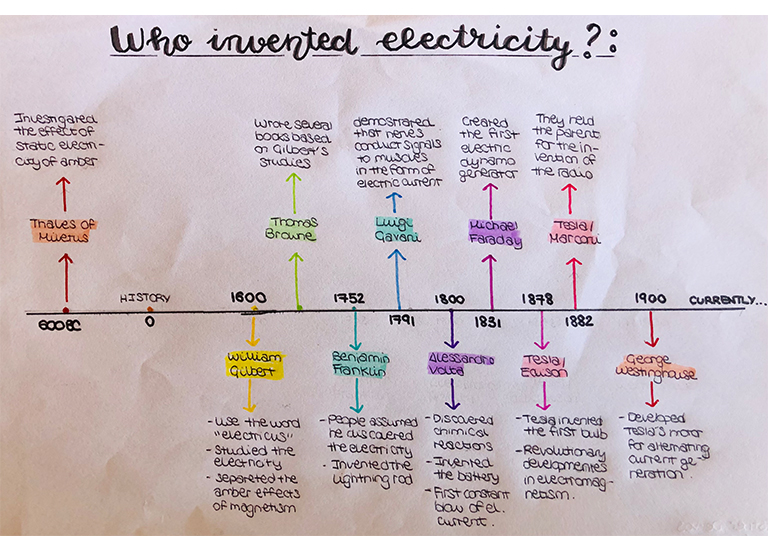 Who invented electricity?:
Investigated
the effect of
static electri-
city of amber
Thales of
Miletus
600 BC
HISTORY
0
Wrote several
books based
on Gilbert's
studies
Thomas
Browne
1600
William
Gilbert
- Use the word
"electricus"
- Studied the
electricity
- Separeted the
amber effects
of magnetism
demostrated
that nerves
conduct signals
to muscles
in the form of
electric current
Luigi
Gavani
1752
1791
Benjamin
Franklin
- People assumed
he discovered
the electricity
- Invented the
Lightning rod
Created
the first
electric
dynamo
generator
Michael
Faraday
1800
1831
Alessandro
Volta
- Discovered
chimical
reactions
- Invented
the battery
- First constant
blow of el.
current.
They held
the patent
for the in-
vention of
the radio
Tesla/
Marconi
1878
1882
Tesla/
Edison
- Tesla invented
the first bulb
- Revolutionary
developmentes
in electromag-
netism.
1900
George
Westinghouse
- Developed
Tesla's motor
for alternating
current ge-
neration.
CURRENTLY...